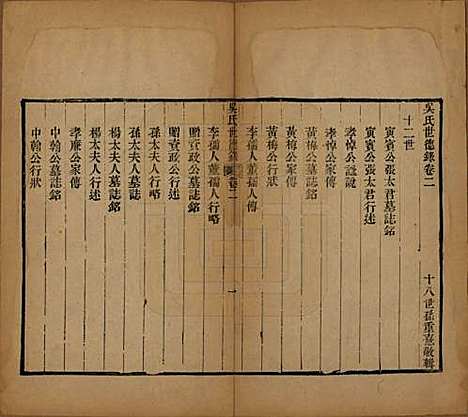 吳氏世德錄卷二
十八世孫重憙敬輯
十二世
寅賓公張太君墓誌銘
寅賓公張太君行述
孝悼公誄說
孝悼公家傳
黃梅公墓誌銘
黃梅公家傳
黃梅公行狀
李孺人戴孺人傳
吳氏世德錄 卷二 一
李孺人戴孺人行略
贈資政公墓誌銘
贈資政公行略
孫太夫人行述
孫太夫人墓誌銘
楊太夫人墓誌銘
楊太夫人行述
孝廉公家傳
中翰公墓誌銘
中翰公行狀